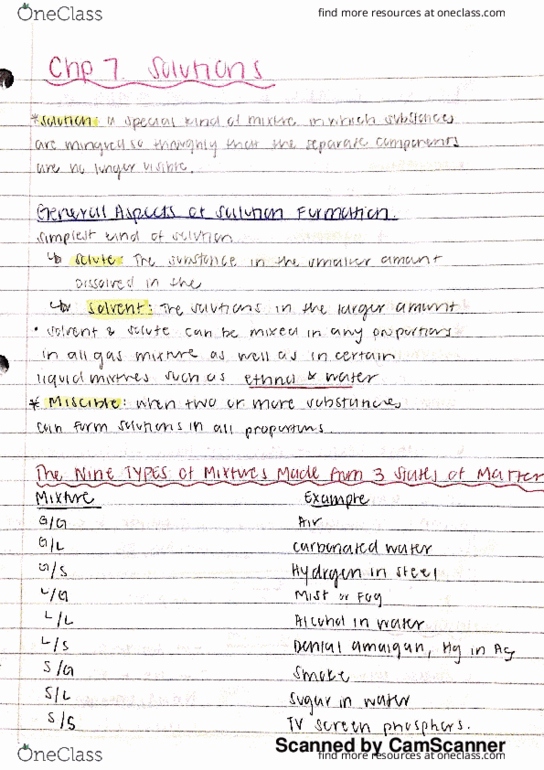 OneClass
find more resources at oneclass.com
Chp 7 Solutions
*Solution: a special kind of mixture in which substances
are mingled so thoroughly that the separate components
are no longer visible.
General Aspects of Solution Formation.
simplest kind of solution
↳ solute: The substance in the smaller amount
dissolved in the
↳ Solvent: The solutions in the larger amount
• solvent & solute can be mixed in any proportions
in all gas mixture as well as in certain
liquid mixtres such as ethnol & water
* Miscible: when two or more substances
can form solutions in all proportions
The Nine TYPES of Mixtures Made from 3 States of Matter
Mixture Example
G/G Air
G/L carbonated water
G/S Hydrogen in steel
L/G Mist or Fog
L/L Alcohol in water
L/S Dental amalgan, Hg in Ag
S/G Smoke
S/L Sugar in water
S/S TV screen phosphors.
Scanned by CamScanner
OneClass
find more resources at oneclass.com